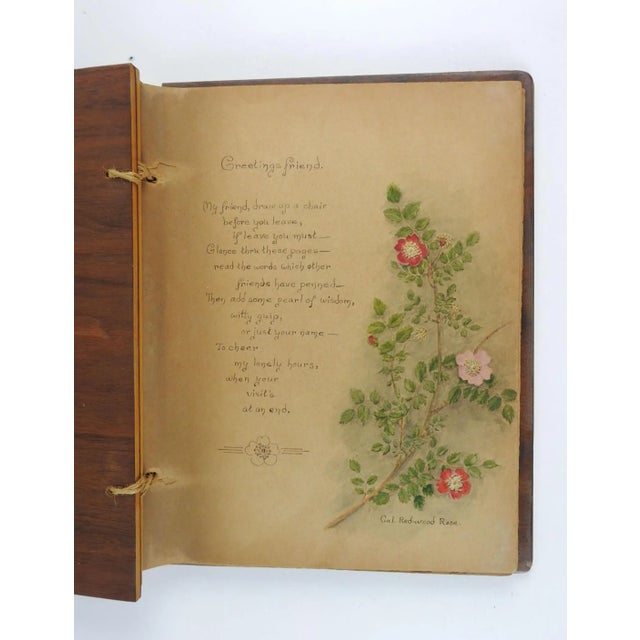 Greetings friend.
My friend, draw up a chair
before you leave,
if leave you must—
Glance thru these pages—
read the words which other
friends have penned—
Then add some pearl of wisdom,
witty quip,
or just your name—
To cheer
my lonely hours,
when your
visit's
at an end.
Cal. Redwood Rose.